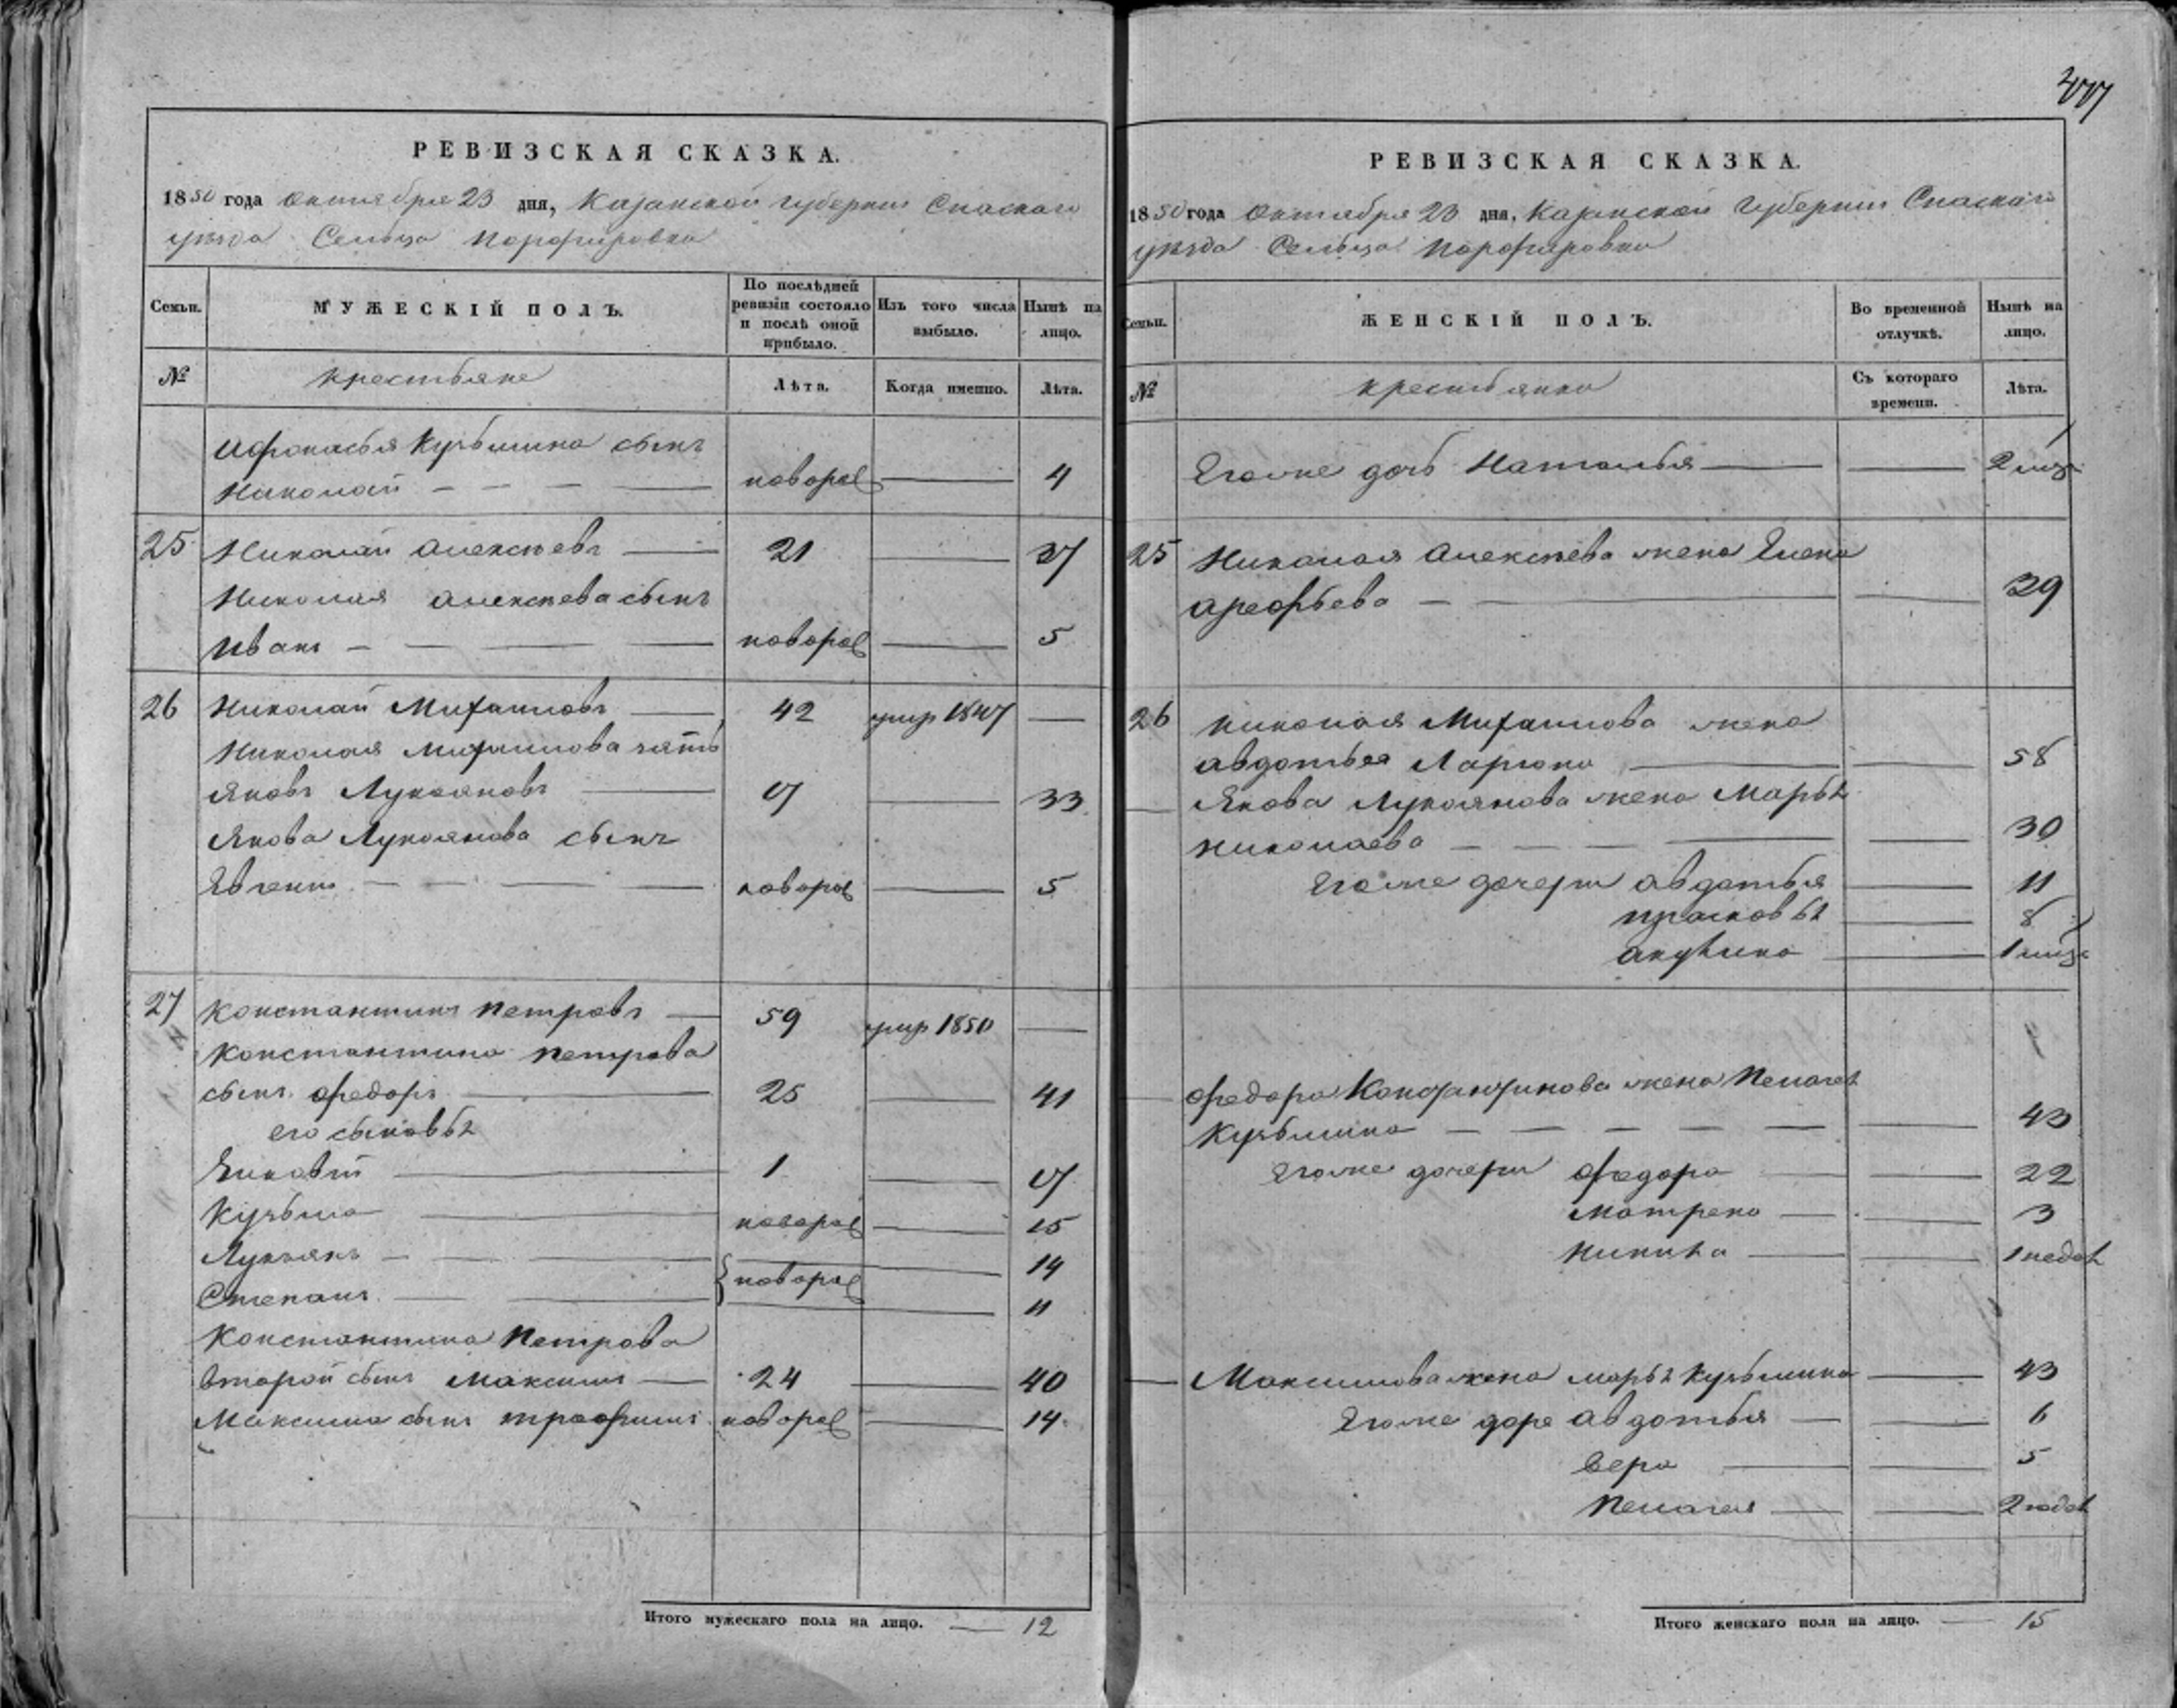 РЕВИЗСКАЯ СКАЗКА.
1850 года октября 23 дня, Казанской губернии Спаскаго
уезда Сельца Порфировки
Семьи.
МУЖЕСКІЙ ПОЛЪ.
По послѣдней ревизіи состояло и послѣ оной прибыло.
Изъ того числа выбыло.
Нынѣ на лицо.
№
крестьяне
Лѣта.
Когда именно.
Лѣта.
Афонасья Кузьмина сынъ
Николай новорож 4
25 Николай Алексѣевъ 21 37
Николая Алексѣева сынъ
Иванъ новорож 5
26 Николай Михаиловъ 42 умр 1847
Николая Михаилова зять
Яковъ Лукояновъ 17 33
Якова Лукоянова сынъ
Евгени новорож 5
27 Константинъ Петровъ 59 умр 1850
Константина Петрова
сынъ Федоръ 25 41
его сыновья
Яковъ 1 17
Кузьма новорож 15
Лукьянъ 14
Степанъ новорож 11
Константина Петрова
второй сынъ Максимъ 24 40
Максима сынъ трофимъ новорож 14
Итого мужескаго пола на лицо. 12
РЕВИЗСКАЯ СКАЗКА.
1850 года октября 23 дня, Казанской Губернии Спаскаго
уезда Сельца Порфировки
Семьи.
ЖЕНСКІЙ ПОЛЪ.
Во временной отлучкѣ.
Нынѣ на лицо.
№
крестьянки
Съ котораго времени.
Лѣта.
Егоже дочь Наталья
25 Николая Алексѣева жена Елена
Арефьева 29
26 Николая Михаилова жена
авдотья Лариона 58
Якова Лукоянова жена Марья
Николаева 30
Егоже дочери авдотья 11
прасковья 8
акулина
Федора Константинова жена Пелагея
Кузьмина 43
Егоже дочери Федора 22
Матрена 3
Максимова жена марья Кузьмина 43
Егоже доре авдотья 6
вера 5
Пелагея
Итого женскаго пола на лицо. 15